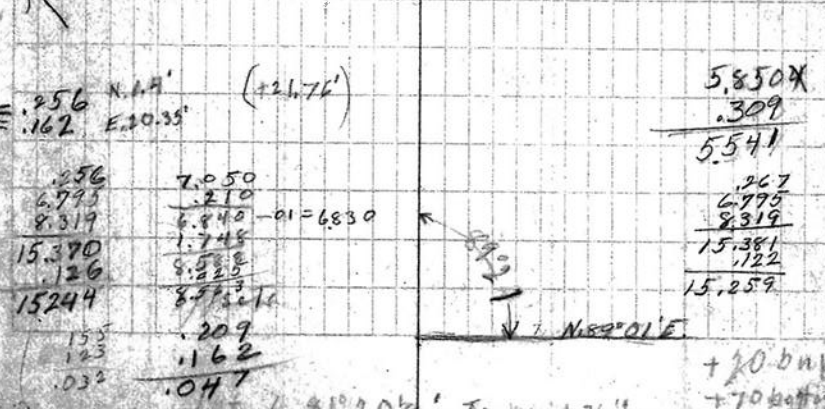 .256 N.
.162 E.20.35'
(+21.76')
.256
6.795
8.319
15.370
.126
15.244
155
123
.032
7.050
.210
6.840 -01=6830
1.748
8.588
.209
.162
.047
N.89°01'E.
5.850
.309
5.541
.267
6.795
8.319
15.381
.122
15.259